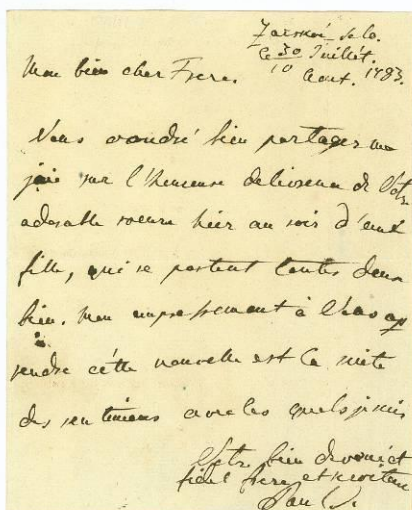 Zarskoi Selo.
Ce 30 Juillét.
10 Aout. 1783.
Mon bien cher Frere.
Vous voudré bien partager ma
joie sur l'heureuse delivrence de Votre
adorable soeure hier au soir d'une
fille, qui se portent toutes deux
bien. Mon empressement à Vous ap
rendre cétte nouvelle est la suite
des sentimens avec les quels je suis
Votre bien devoué et
fidel frere et serviteur
Paul